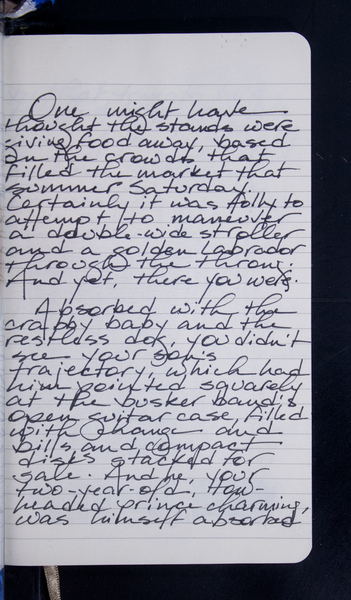 One might have
thought the stands were
giving food away, based
on the crowds that
filled the market that
summer Saturday.
Certainly it was folly to
attempt to maneuver
a double-wide stroller
and a golden Labrador
through the throng.
And yet, there you were.
Absorbed with the
crabby baby and the
restless dog, you didn't
see your son's
trajectory, which had
him pointed squarely
at the busker band's
open guitar case, filled
with change and
bills and compact
disks stacked for
sale. And he, your
two-year-old, tow-
headed prince charming,
was himself absorbed